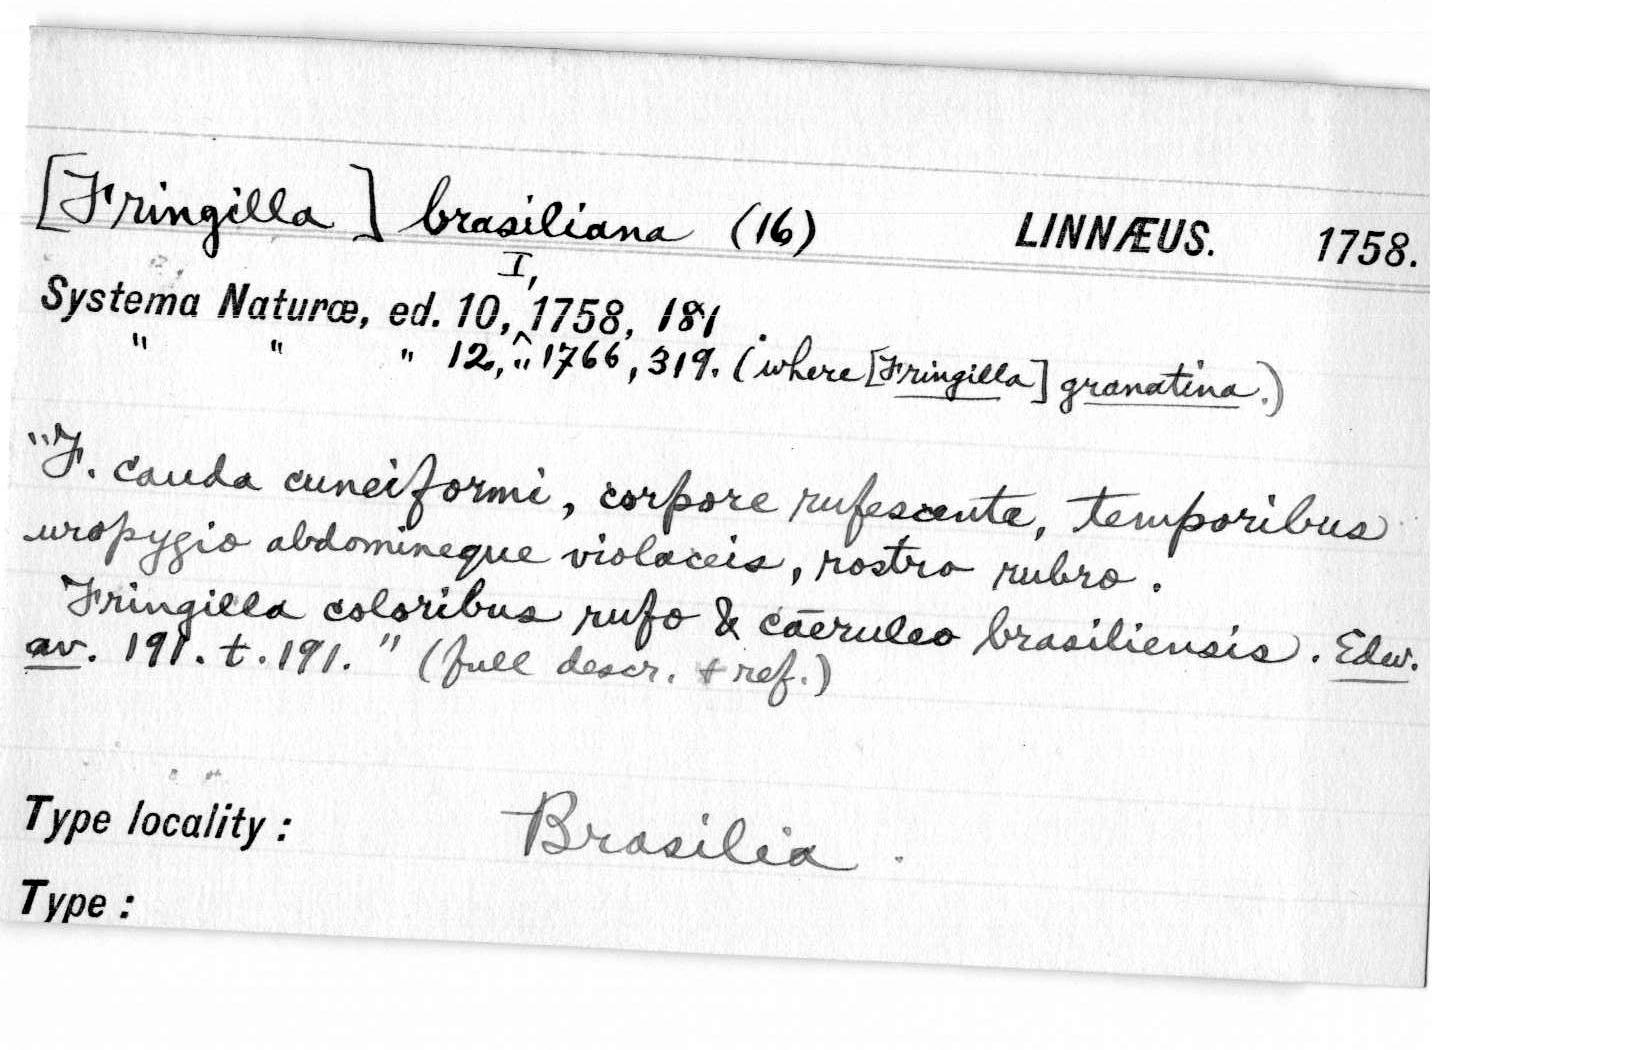 [Fringilla] brasiliana (16) LINNÆUS. 1758.
I,
Systema Naturæ, ed. 10, ^ 1758, 181
" " " 12, " 1766, 319. (where [Fringilla] granatina.)
"F. cauda cuneiformi, corpore rufescente, temporibus
uropygio abdomineque violaceis, rostro rubro.
Fringilla coloribus rufo & cāeruleo brasiliensis. Edw.
av. 191. t. 191." (full descr. + ref.)
Type locality: Brasilia.
Type: